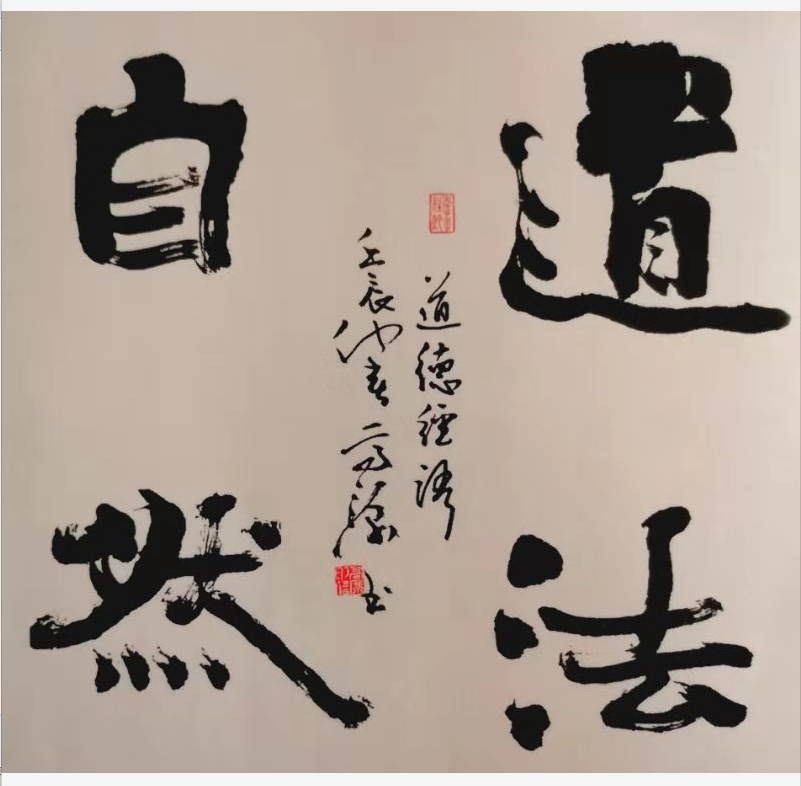 道法
自然
道德經語
壬辰仲春
书